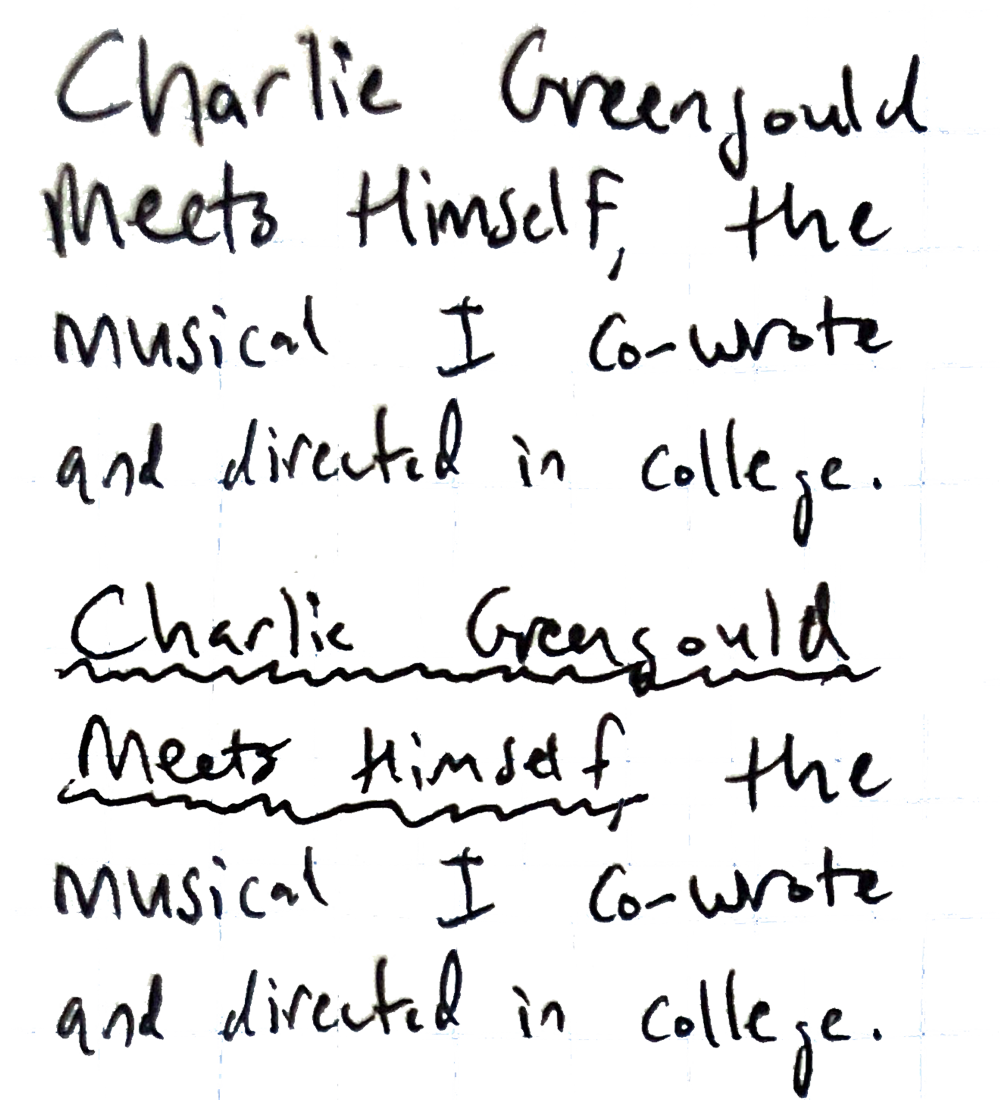 Charlie Greengould
Meets Himself, the
musical I co-wrote
and directed in college.
Charlie Greengould
Meets Himself, the
musical I co-wrote
and directed in college.